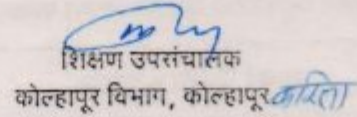 शिक्षण उपसंचालक
कोल्हापूर विभाग, कोल्हापूर करिता